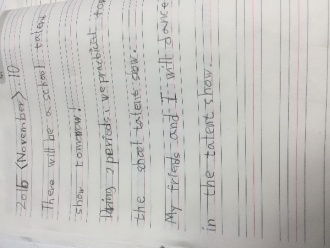 2016 <November> : 10
There will be a school talent
show tomorrow!
During 2 periods, we practiced for
the school talent show.
My friends and I will dance
in the talent show.